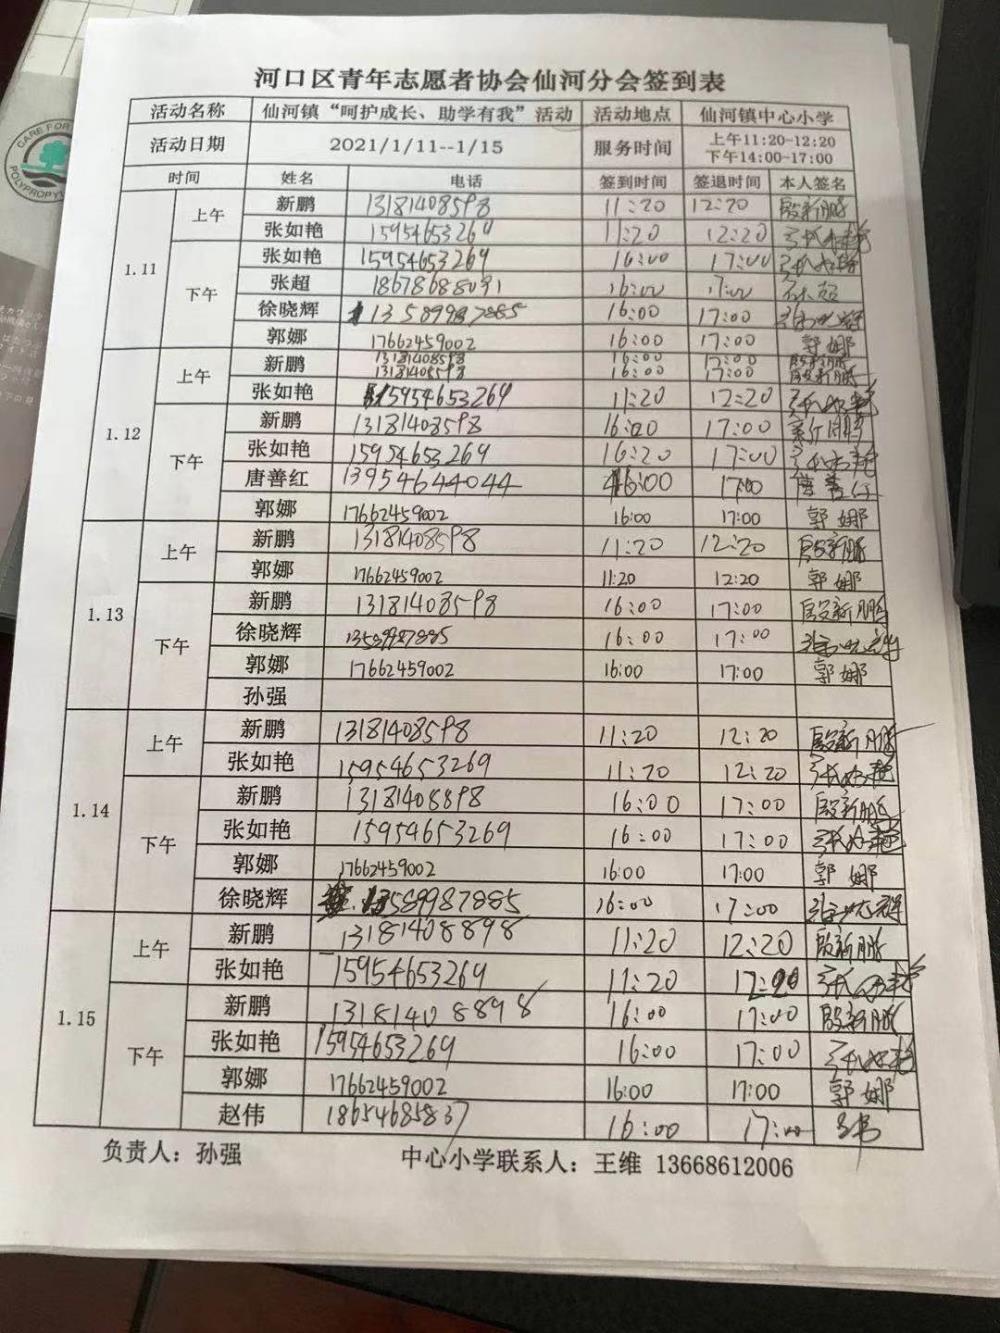 CARE FOR
POLYPROPY
河口区青年志愿者协会仙河分会签到表
活动名称 仙河镇“呵护成长、助学有我”活动 活动地点 仙河镇中心小学
活动日期 2021/1/11--1/15 服务时间 上午11:20-12:20
下午14:00-17:00
时间 姓名 电话 签到时间 签退时间 本人签名
1.11 上午 新鹏 13181408598 11:20 12:20 殷新鹏
张如艳 15954653269 11:20 12:20 张如艳
下午 张如艳 15954653269 16:00 17:00 张如艳
张超 18678688091 16:00 17:00 张超
徐晓辉 13589987885 16:00 17:00 徐晓辉
郭娜 17662459002 16:00 17:00 郭娜
1.12 上午 新鹏 13181408598 16:00 17:00 殷新鹏
13181408598 16:00 17:00 殷新鹏
张如艳 15954653269 11:20 12:20 张如艳
下午 新鹏 13181408598 16:00 17:00
张如艳 15954653269 16:20 17:00 张如艳
唐善红 13954644044 16:00 17:00 唐善红
郭娜 17662459002 16:00 17:00 郭娜
1.13 上午 新鹏 13181408598 11:20 12:20 殷新鹏
郭娜 17662459002 11:20 12:20 郭娜
下午 新鹏 13181408598 16:00 17:00 殷新鹏
徐晓辉 16:00 17:00 徐晓辉
郭娜 17662459002 16:00 17:00 郭娜
孙强
1.14 上午 新鹏 13181408598 11:20 12:20 殷新鹏
张如艳 15954653269 11:20 12:20 张如艳
下午 新鹏 13181408898 16:00 17:00 殷新鹏
张如艳 15954653269 16:00 17:00 张如艳
郭娜 17662459002 16:00 17:00 郭娜
徐晓辉 13589987885 16:00 17:00 徐晓辉
1.15 上午 新鹏 13181408898 11:20 12:20 殷新鹏
张如艳 15954653269 11:20 12:20 张如艳
下午 新鹏 13181408898 16:00 17:00 殷新鹏
张如艳 15954653269 16:00 17:00 张如艳
郭娜 17662459002 16:00 17:00 郭娜
赵伟 18654685837 16:00 17:00
负责人：孙强 中心小学联系人：王维 13668612006